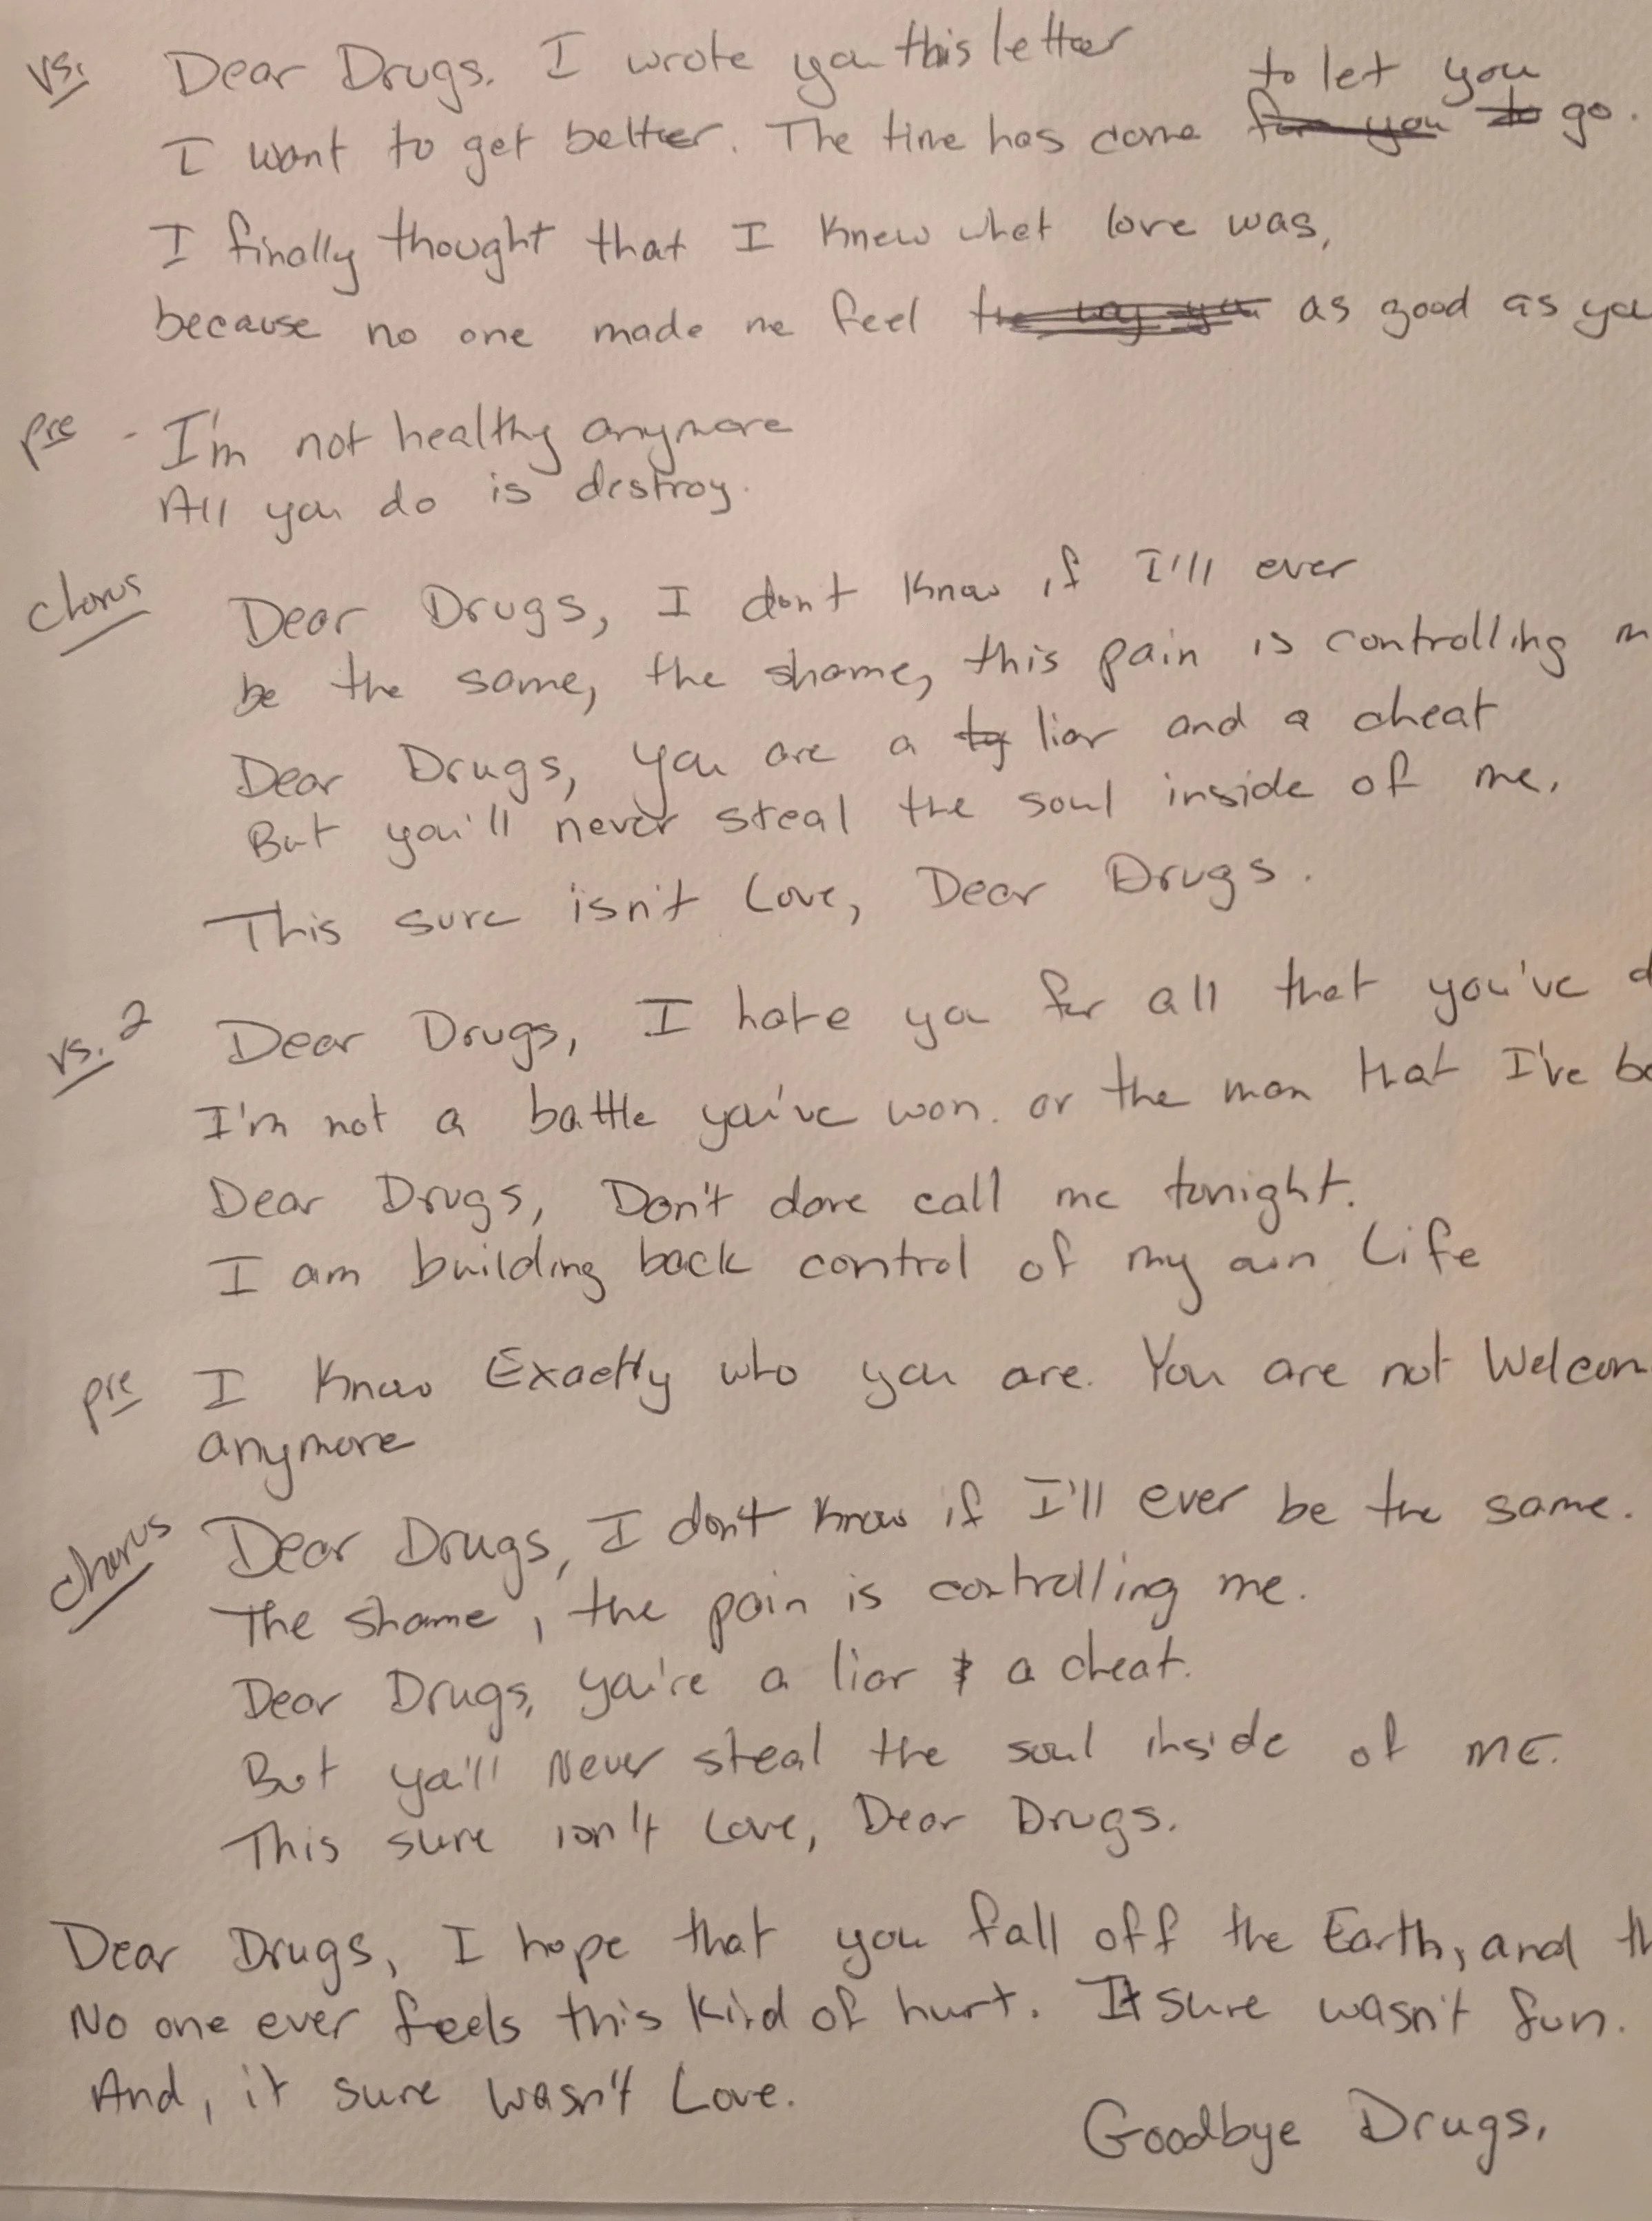 vs. Dear Drugs. I wrote you this letter
to let you
I want to get better. The time has come ~~for you to~~ go.
I finally thought that I knew what love was,
because no one made me feel ~~the way you~~ as good as you
pre - I'm not healthy anymore
All you do is destroy.
chorus Dear Drugs, I don't know if I'll ever
be the same, the shame, this pain is controlling m
Dear Drugs, you are a liar and a cheat
But you'll never steal the soul inside of me.
This sure isn't Love, Dear Drugs.
vs. 2 Dear Drugs, I hate you for all that you've d
I'm not a battle you've won. or the man that I've be
Dear Drugs, Don't dare call me tonight.
I am building back control of my own Life
pre I know Exactly who you are. You are not Welcom
anymore
chorus Dear Drugs, I don't know if I'll ever be the same.
The shame, the pain is controlling me.
Dear Drugs, you're a liar & a cheat.
But you'll Never steal the soul inside of ME.
This sure isn't Love, Dear Drugs.
Dear Drugs, I hope that you fall off the Earth, and th
No one ever feels this kind of hurt. It sure wasn't fun.
And, it sure wasn't Love.
Goodbye Drugs.